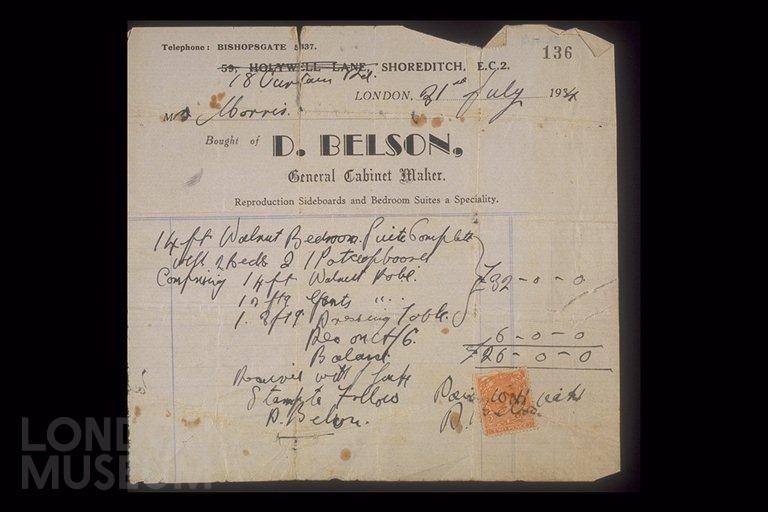 Telephone: BISHOPSGATE 5437.
136
59, HOLYWELL LANE, SHOREDITCH, E.C.2.
78 Curtain Rd.
LONDON, 31st July 1934
M Morris.
Bought of D. BELSON,
General Cabinet Maker.
Reproduction Sideboards and Bedroom Suites a Speciality.
1 4ft Walnut Bedroom Suite Complete
with 2 Beds & 1 Potcupboard
Comprising 1 4ft Walnut Robe. £32-0-0
Gents " ..
1. Dressing Table.
6. 6-0-0
£26-0-0
Received with
Stamp to Follow
D. Belson.
with thanks
D. Belson.
LONDON
MUSEUM